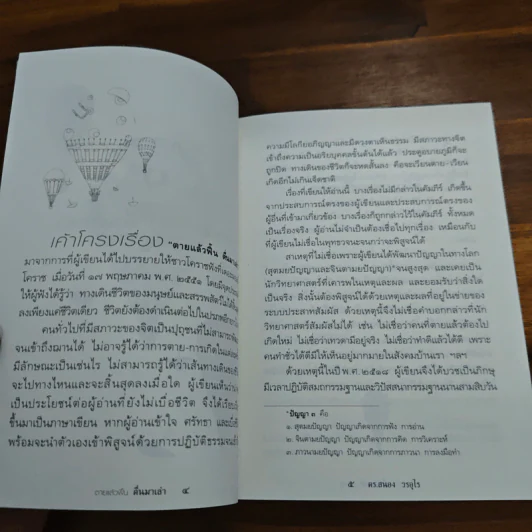 เค้าโครงเรื่อง "ตายแล้วฟื้น
มาจากการที่ผู้เขียนได้ไปบรรยายให้ชาวโคราชฟังที่
โคราช เมื่อวันที่ ๑๗ พฤษภาคม พ.ศ. ๒๕๕๑ โดยมี
ให้ผู้ฟังได้รู้ว่า ทางเดินชีวิตของมนุษย์และสรรพสัตว์ไม่ได้
ลงเพียงแค่ชีวิตเดียว ชีวิตยังต้องดำเนินต่อไปใน
คนทั่วไปที่มีสภาวะของจิตเป็นปุถุชนที่ไม่สามารถ
จนเข้าถึงฌานได้ ไม่อาจรู้ได้ว่าการตาย-การเกิดใน
มีลักษณะเป็นเช่นไร ไม่สามารถรู้ได้ว่าเส้นทางเดิน
จะไปทางไหนและจะสิ้นสุดลงเมื่อใด ผู้เขียนเห็นว่า
เป็นประโยชน์ต่อผู้อ่านที่ยังไม่เบื่อชีวิต จึงได้เรียบ
ขึ้นมาเป็นภาษาเขียน หากผู้อ่านเข้าใจ ศรัทธา และ
พร้อมจะนำตัวเองเข้าพิสูจน์ด้วยการปฏิบัติธรรมจน
ตายแล้วฟื้น ตื่นมาเล่า ๔
ความมีโลกียอภิญญาและมีดวงตาเห็นธรรม มีสภาวะทางจิต
เข้าถึงความเป็นอริยบุคคลขั้นต้นได้แล้ว ประตูอบายภูมิก็จะ
ถูกปิด ทางเดินของชีวิตก็จะหดสั้นลง คือจะเวียนตาย-เวียน
เกิดอีกไม่เกินเจ็ดชาติ
เรื่องที่เขียนให้อ่านนี้ บางเรื่องไม่มีกล่าวในคัมภีร์ เกิดขึ้น
จากประสบการณ์ตรงของผู้เขียนและประสบการณ์ตรงของ
ผู้อื่นที่เข้ามาเกี่ยวข้อง บางเรื่องก็ถูกกล่าวไว้ในคัมภีร์ ทั้งหมด
เป็นเรื่องจริง ผู้อ่านไม่จำเป็นต้องเชื่อไปทุกเรื่อง เหมือนกับ
ที่ผู้เขียนไม่เชื่อในพุทธวจนะจนกว่าจะพิสูจน์ได้
สาเหตุที่ไม่เชื่อเพราะผู้เขียนได้พัฒนาปัญญาในทางโลก
(สุตมยปัญญาและจินตามยปัญญา)*จนสูงสุด และเคยเป็น
นักวิทยาศาสตร์ที่เคารพในเหตุและผล และยอมรับว่าสิ่งใด
เป็นจริง สิ่งนั้นต้องพิสูจน์ได้ด้วยเหตุและผลที่อยู่ในข่ายของ
ระบบประสาทสัมผัส ด้วยเหตุนี้จึงไม่เชื่อคำบอกกล่าวที่นัก
วิทยาศาสตร์สัมผัสไม่ได้ เช่น ไม่เชื่อว่าคนที่ตายแล้วต้องไป
เกิดใหม่ ไม่เชื่อว่าเทวดามีอยู่จริง ไม่เชื่อว่าทำดีแล้วได้ดี เพราะ
คนทำชั่วได้ดีมีให้เห็นอยู่มากมายในสังคมบ้านเรา ฯลฯ
ด้วยเหตุนี้ในปี พ.ศ. ๒๕๑๘ ผู้เขียนจึงได้บวชเป็นภิกษุ
มีเวลาปฏิบัติสมถกรรมฐานและวิปัสสนากรรมฐานนานสามสิบวัน
*ปัญญา ๓ คือ
๑. สุตมยปัญญา ปัญญาเกิดจากการฟัง การอ่าน
๒. จินตามยปัญญา ปัญญาเกิดจากการคิด การวิเคราะห์
๓. ภาวนามยปัญญา ปัญญาเกิดจากการภาวนา การลงมือทำ
๕ ดร.สนอง วรอุไร